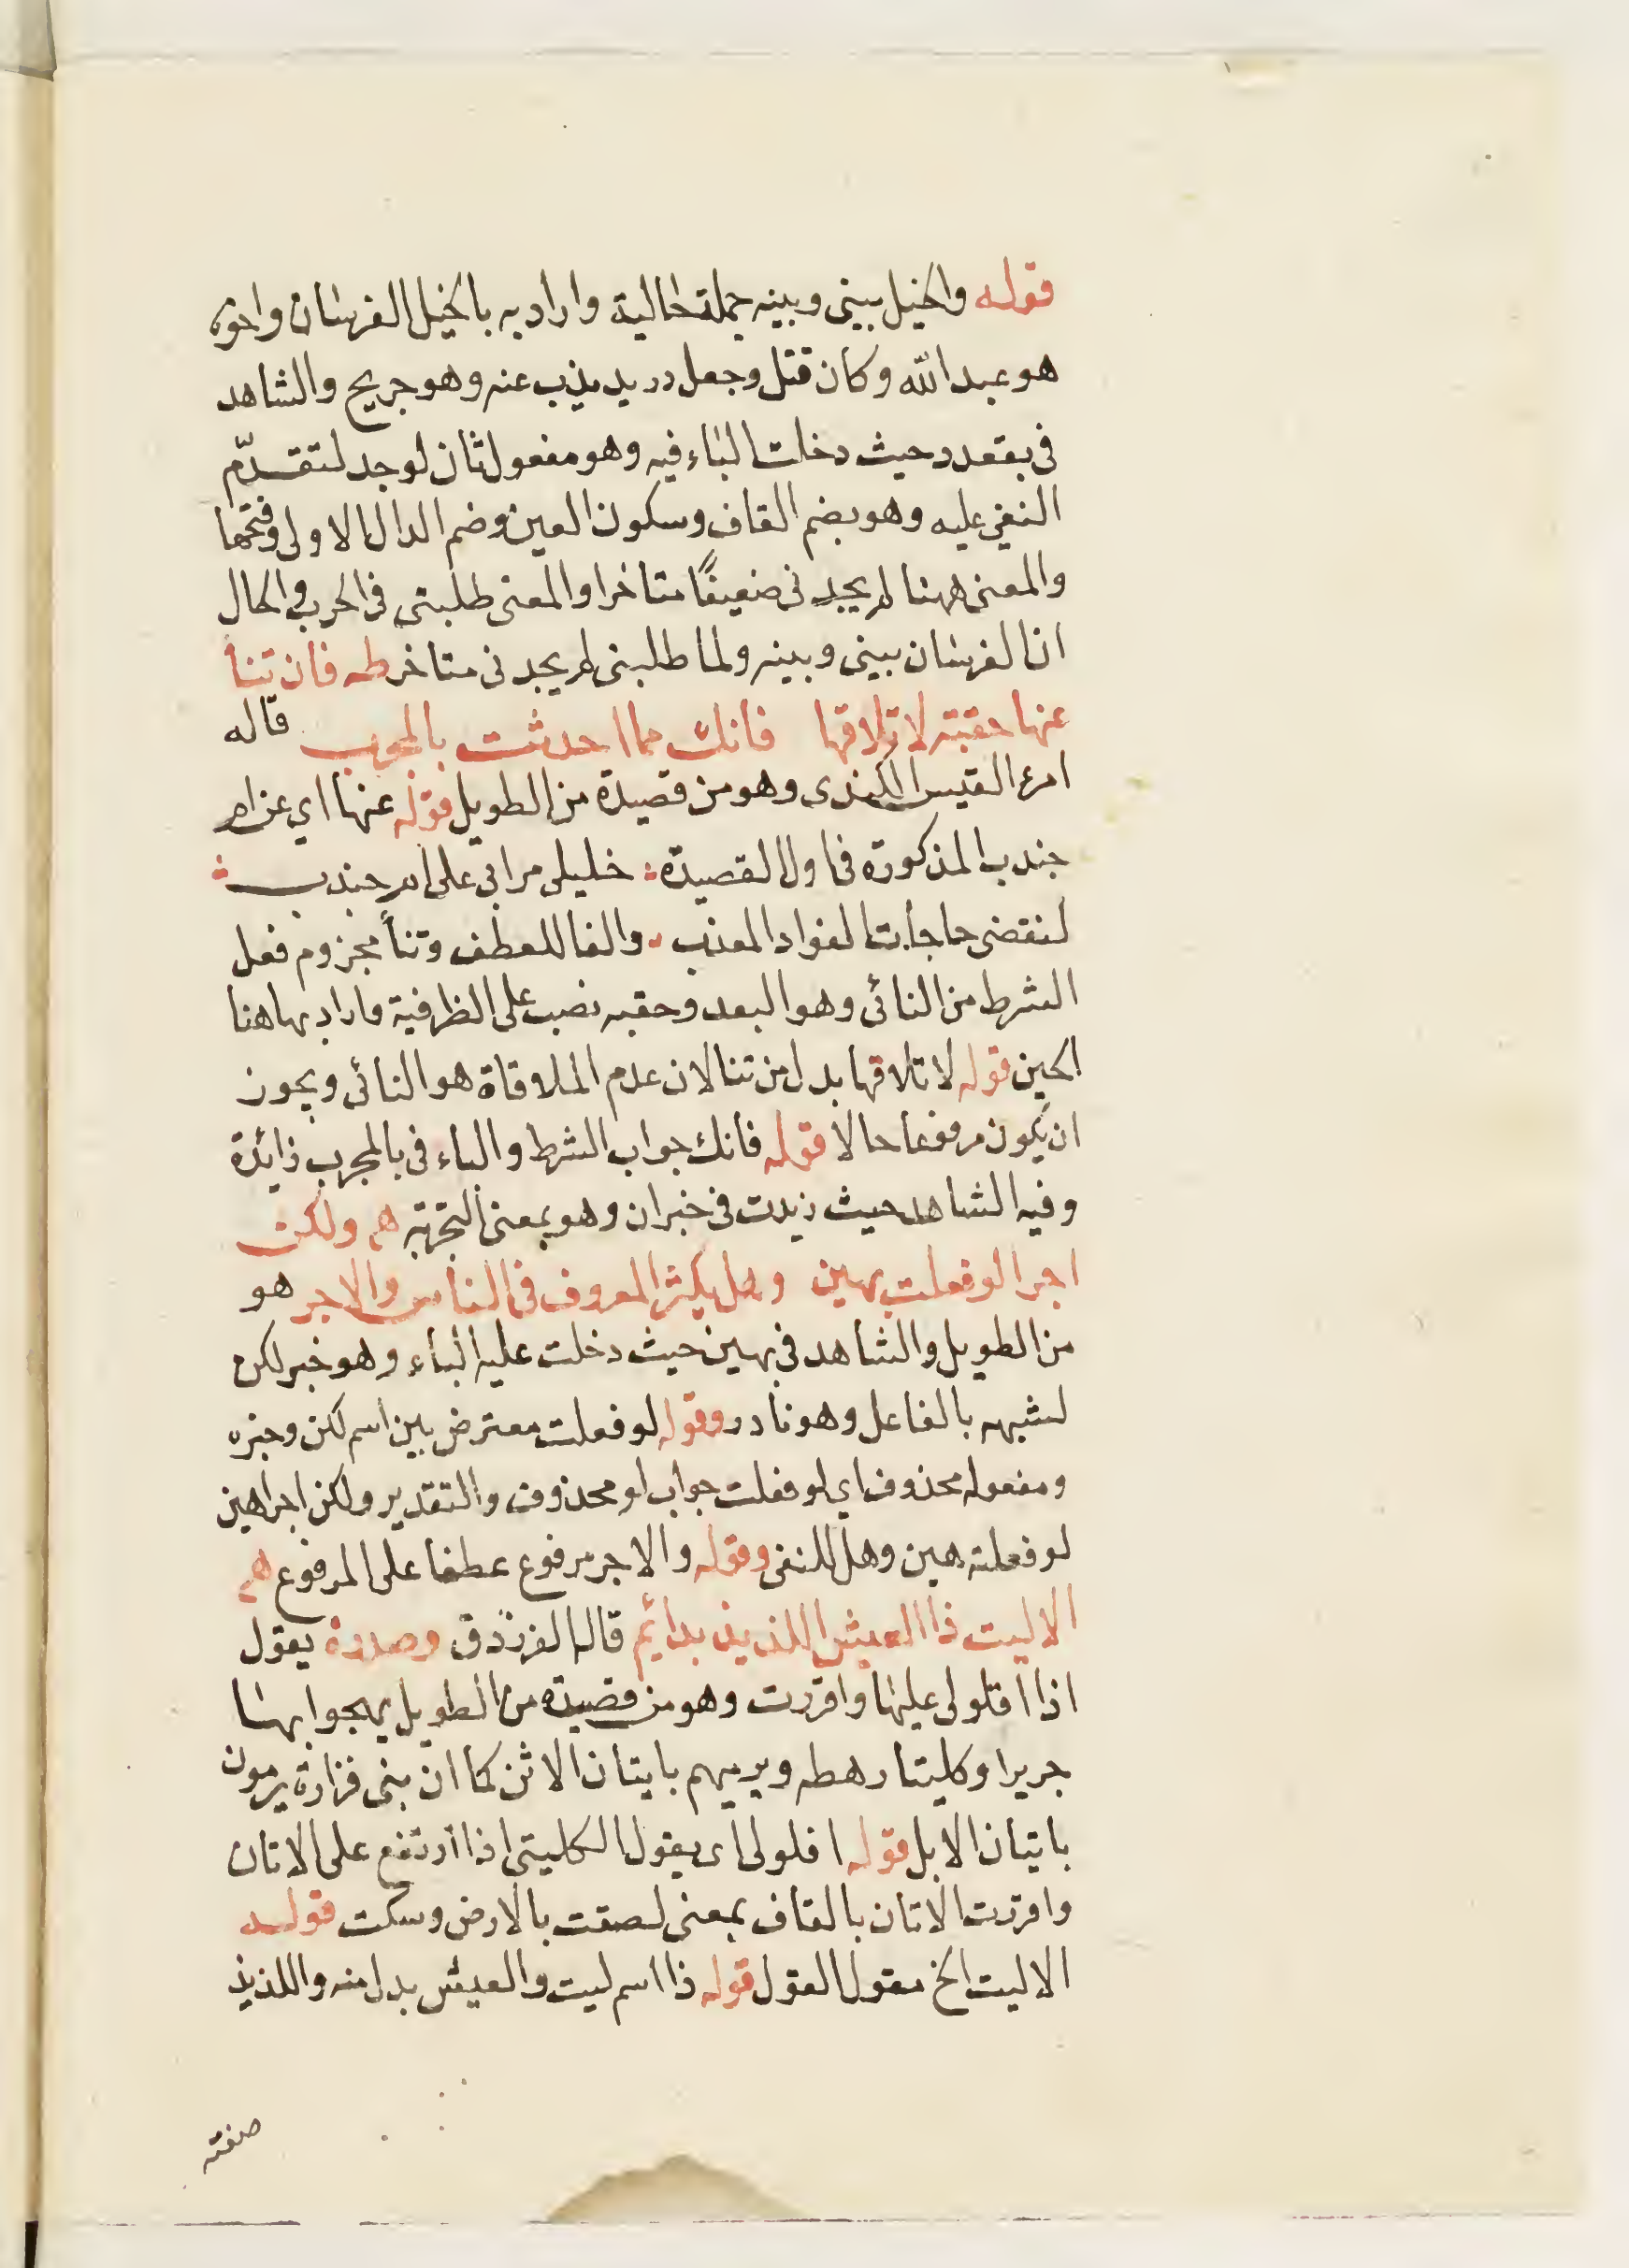 قوله والخيل بيني وبينه جملة حالية واراد به بالخيل الفرسان واخوه
هو عبد الله وكان قتل وجعل دريد يذب عنه وهو جريح والشاهد
في بقعدد حيث دخلت الباء فيه وهو مفعول ثان لوجد لتقدّم
النفي عليه وهو بضم القاف وسكون العين وضم الدال الاولى وفتحها
والمعنى ههنا لم يجدني ضعيفًا متاخرا والمعنى طلبتى في الحرب والحال
ان الفرسان بيني وبينه ولما طلبني لم يجدني متاخر طه فان تنأ
عنها حقبة لا تلاقها فانك مما احدثت بالمجرب قاله
امرء القيس الكندى وهو من قصيدة من الطويل قوله عنها اي عن ام
جندب المذكورة في اول القصيدة خليلي مرا بي على ام جندب
لنقضى حاجات الفواد المعذب والفا للعطف وتنأ مجزوم فعل
الشرط من النائى وهو البعد وحقبه نصب على الظرفية واراد بها هنا
الحين قوله لا تلاقها بدل من تنا لان عدم الملاقاة هو النائى ويجوز
ان يكون مرفوعا حالا قوله فانك جواب الشرط والباء في بالمجرب زائدة
وفيه الشاهد حيث زيدت في خبر ان وهو بمعنى التجربة هـ ولكن
اجرا لو فعلت بهين وهل يكثر المعروف في الناس والاجر هو
من الطويل والشاهد في بهين حيث دخلت عليه الباء وهو خبر لكن
لشبهه بالفاعل وهو نادر وقوله لو فعلت معترض بين اسم لكن وخبره
ومفعوله محذوف اي لو فعلت جواب لو محذوف والتقدير ولكن اجرا هين
لو فعلته هين وهل للنفى وقوله والاجر مرفوع عطفا على المرفوع هـ
الا ليت ذا العيش اللذيذ بدائم قاله الفرزدق وصدره يقول
اذا اقلولى عليها واقردت وهو من قصيدة من الطويل يهجوا بها
جريرا وكليبا رهطه ويرميهم باتيان الاتن كما ان بني فزارة يرمون
باتيان الابل قوله اقلولى اى يقول الكليبي اذا ارتفع على الاتان
واقردت الاتان بالقاف بمعنى لصقت بالارض وسكت قوله
الا ليت الخ مقول القول قوله ذا اسم ليت والعيش بدل منه واللذيذ
صفته